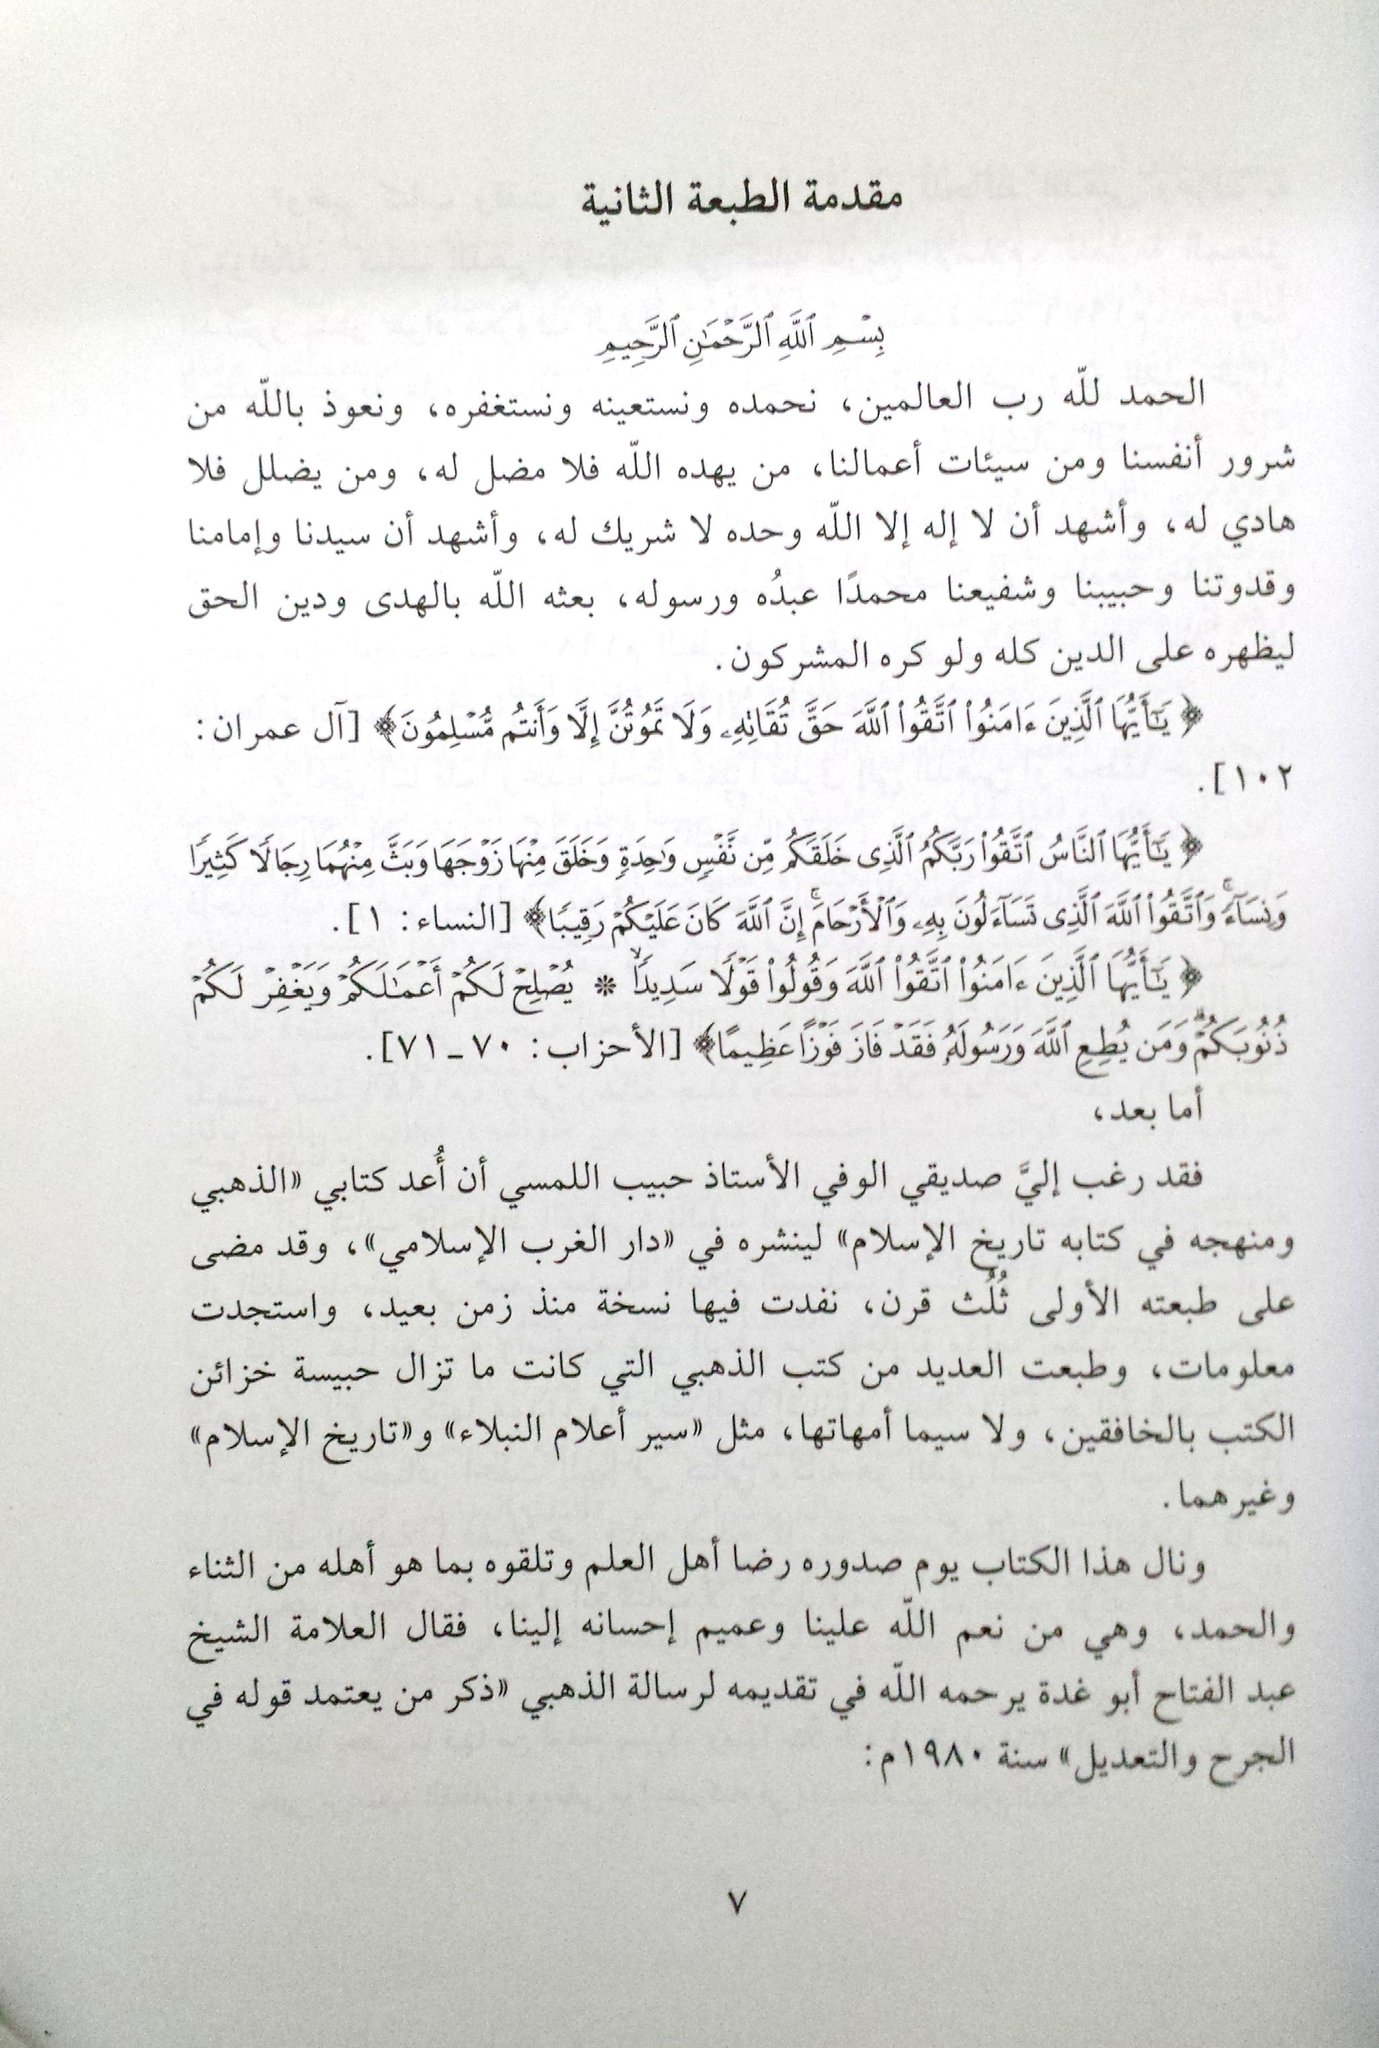 مقدمة الطبعة الثانية
بِسْمِ ٱللَّهِ ٱلرَّحْمَٰنِ ٱلرَّحِيمِ
الحمد للّه رب العالمين، نحمده ونستعينه ونستغفره، ونعوذ باللّه من
شرور أنفسنا ومن سيئات أعمالنا، من يهده اللّه فلا مضل له، ومن يضلل فلا
هادي له، وأشهد أن لا إله إلا اللّه وحده لا شريك له، وأشهد أن سيدنا وإمامنا
وقدوتنا وحبيبنا وشفيعنا محمدًا عبدُه ورسوله، بعثه اللّه بالهدى ودين الحق
ليظهره على الدين كله ولو كره المشركون.
﴿ يَـٰٓأَيُّهَا ٱلَّذِينَ ءَامَنُوا۟ ٱتَّقُوا۟ ٱللَّهَ حَقَّ تُقَاتِهِۦ وَلَا تَمُوتُنَّ إِلَّا وَأَنتُم مُّسْلِمُونَ﴾ [آل عمران:
١٠٢].
﴿ يَـٰٓأَيُّهَا ٱلنَّاسُ ٱتَّقُوا۟ رَبَّكُمُ ٱلَّذِى خَلَقَكُم مِّن نَّفْسٍ وَٰحِدَةٍ وَخَلَقَ مِنْهَا زَوْجَهَا وَبَثَّ مِنْهُمَا رِجَالًا كَثِيرًا
وَنِسَآءً ۚ وَٱتَّقُوا۟ ٱللَّهَ ٱلَّذِى تَسَآءَلُونَ بِهِۦ وَٱلْأَرْحَامَ ۚ إِنَّ ٱللَّهَ كَانَ عَلَيْكُمْ رَقِيبًا﴾ [النساء: ١].
﴿ يَـٰٓأَيُّهَا ٱلَّذِينَ ءَامَنُوا۟ ٱتَّقُوا۟ ٱللَّهَ وَقُولُوا۟ قَوْلًا سَدِيدًا * يُصْلِحْ لَكُمْ أَعْمَـٰلَكُمْ وَيَغْفِرْ لَكُمْ
ذُنُوبَكُمْ ۗ وَمَن يُطِعِ ٱللَّهَ وَرَسُولَهُۥ فَقَدْ فَازَ فَوْزًا عَظِيمًا﴾ [الأحزاب: ٧٠ ـ ٧١].
أما بعد،
فقد رغب إليَّ صديقي الوفي الأستاذ حبيب اللمسي أن أُعد كتابي «الذهبي
ومنهجه في كتابه تاريخ الإسلام» لينشره في «دار الغرب الإسلامي»، وقد مضى
على طبعته الأولى ثُلُث قرن، نفدت فيها نسخة منذ زمن بعيد، واستجدت
معلومات، وطبعت العديد من كتب الذهبي التي كانت ما تزال حبيسة خزائن
الكتب بالخافقين، ولا سيما أمهاتها، مثل «سير أعلام النبلاء» و«تاريخ الإسلام»
وغيرهما.
ونال هذا الكتاب يوم صدوره رضا أهل العلم وتلقوه بما هو أهله من الثناء
والحمد، وهي من نعم اللّه علينا وعميم إحسانه إلينا، فقال العلامة الشيخ
عبد الفتاح أبو غدة يرحمه اللّه في تقديمه لرسالة الذهبي «ذكر من يعتمد قوله في
الجرح والتعديل» سنة ١٩٨٠م:
٧